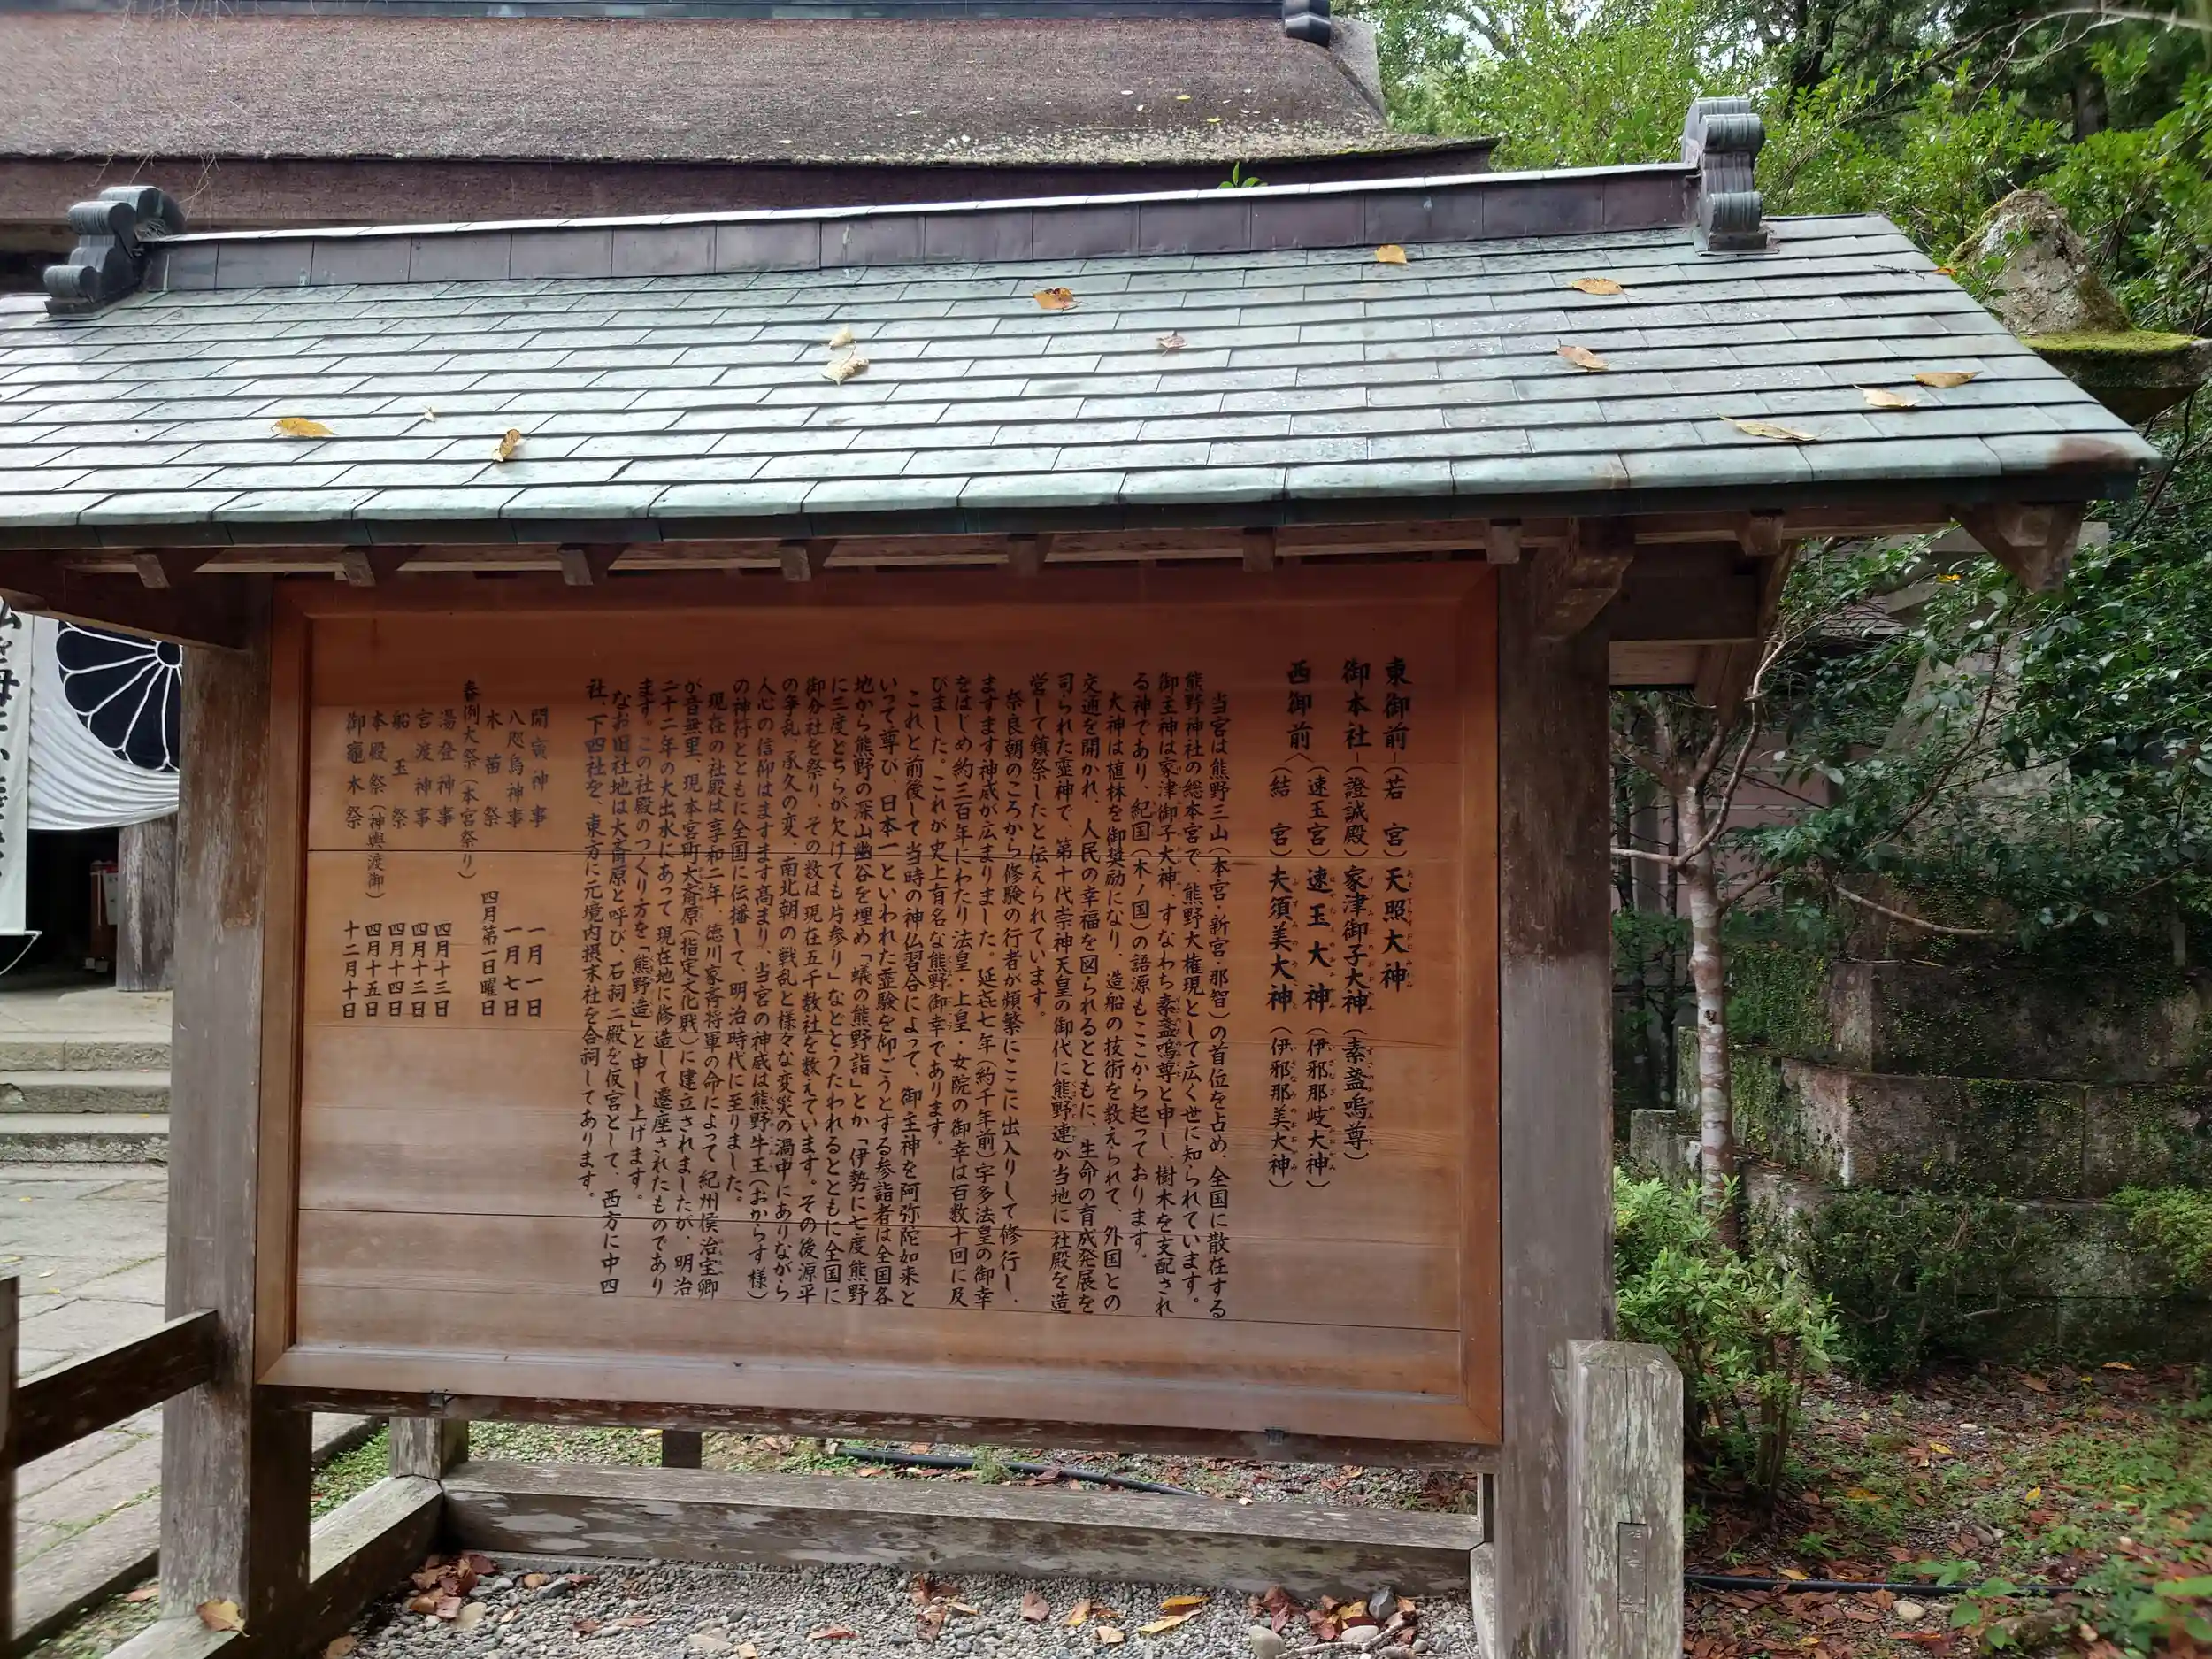 東御前―(若宮)天照大神
御本社―(證誠殿)家津御子大神(素盞嗚尊)
西御前〈(速玉宮)速玉大神(伊邪那岐大神)
(結宮)夫須美大神(伊邪那美大神)
当宮は熊野三山(本宮・新宮・那智)の首位を占め、全国に散在する
熊野神社の総本宮で、熊野大権現として広く世に知られています。
御主神は家津御子大神、すなわち素盞嗚尊と申し、樹木を支配され
る神であり、紀国(木ノ国)の語源もここから起っております。
大神は植林を御奨励になり、造船の技術を教えられて、外国との
交通を開かれ、人民の幸福を図られるとともに、生命の育成発展を
司られた霊神で、第十代崇神天皇の御代に熊野連が当地に社殿を造
営して鎮祭したと伝えられています。
奈良朝のころから修験の行者が頻繁にここに出入りして修行し、
ますます神威が広まりました。延㐂七年(約千年前)宇多法皇の御幸
をはじめ約三百年にわたり法皇・上皇・女院の御幸は百数十回に及
びました。これが史上有名な熊野御幸であります。
これと前後して当時の神仏習合によって、御主神を阿弥陀如来と
いって尊び、日本一といわれた霊験を仰ごうとする参詣者は全国各
地から熊野の深山幽谷を埋め「蟻の熊野詣」とか「伊勢に七度熊野
に三度どちらが欠けても片参り」などとうたわれるとともに全国に
御分社を祭り、その数は現在五千数社を数えています。その後源平
の争乱、承久の変、南北朝の戦乱と様々な変災の渦中にありながら
人心の信仰はますます高まり、当宮の神威は熊野牛王(おからす様)
の神符とともに全国に伝播して、明治時代に至りました。
現在の社殿は享和二年、徳川家斉将軍の命によって紀州侯治宝卿
が音無里、現本宮町大斎原(指定文化財)に建立されましたが、明治
二十二年の大出水にあって現在地に修造して遷座されたものであり
ます。この社殿のつくり方を「熊野造」と申し上げます。
なお旧社地は大斎原と呼び、石祠二殿を仮宮として、西方に中四
社、下四社を、東方に元境内摂末社を合祠してあります。
開寅神事 一月一日
八咫烏神事 一月七日
木苗祭 四月第一日曜日
春例大祭(本宮祭り)
湯登神事 四月十三日
宮渡神事 四月十三日
船玉祭 四月十四日
本殿祭(神輿渡御) 四月十五日
御竈木祭 十二月十日